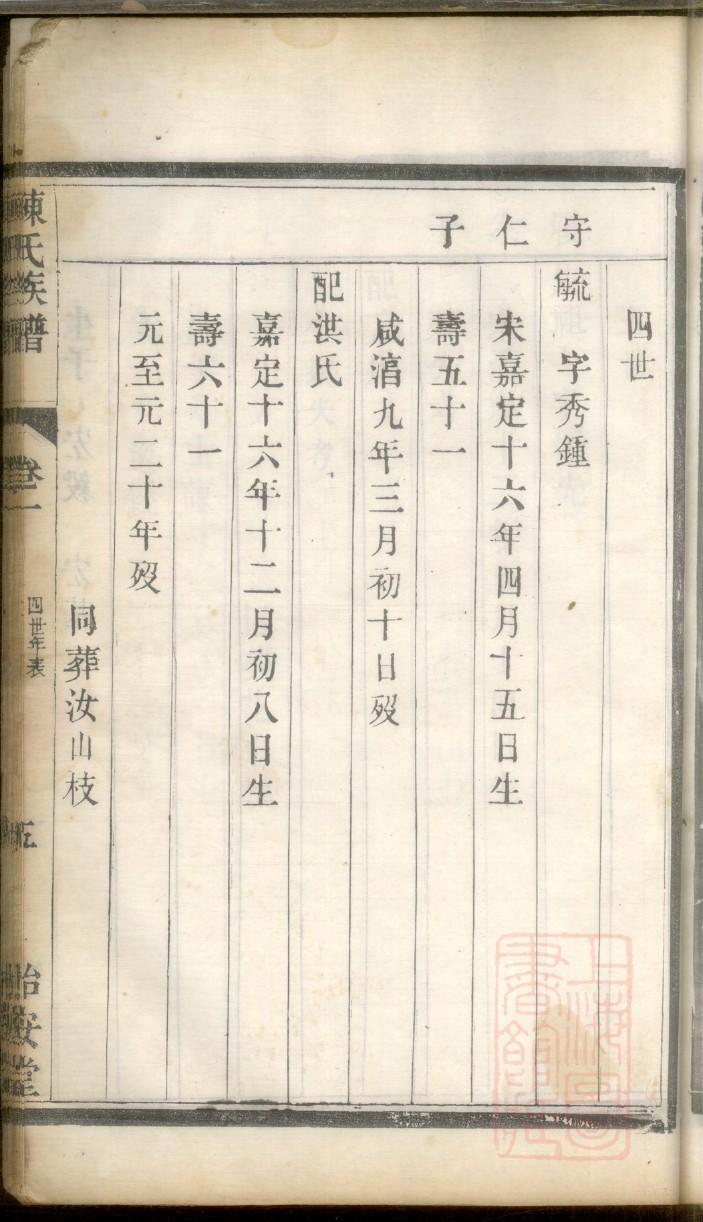 四世
守仁子
毓 字秀鍾
宋嘉定十六年四月十五日生
壽五十一
咸淯九年三月初十日歿
配洪氏
嘉定十六年十二月初八日生
壽六十一
元至元二十年歿
同葬汝山枝
陳氏族譜
卷一
四世年表
怡安堂
上海圖書館藏